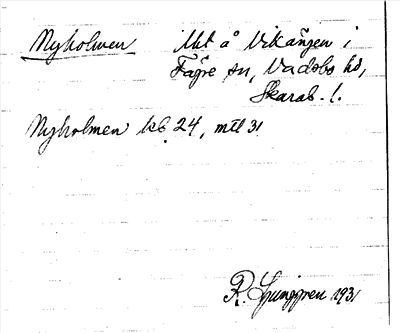 Nyholmen Ut å Vikängen i
Fägre sn, Vadsbo hd,
Skarab. l.
Nyholmen kb 24, mtl 31
R. Ljunggren 1931